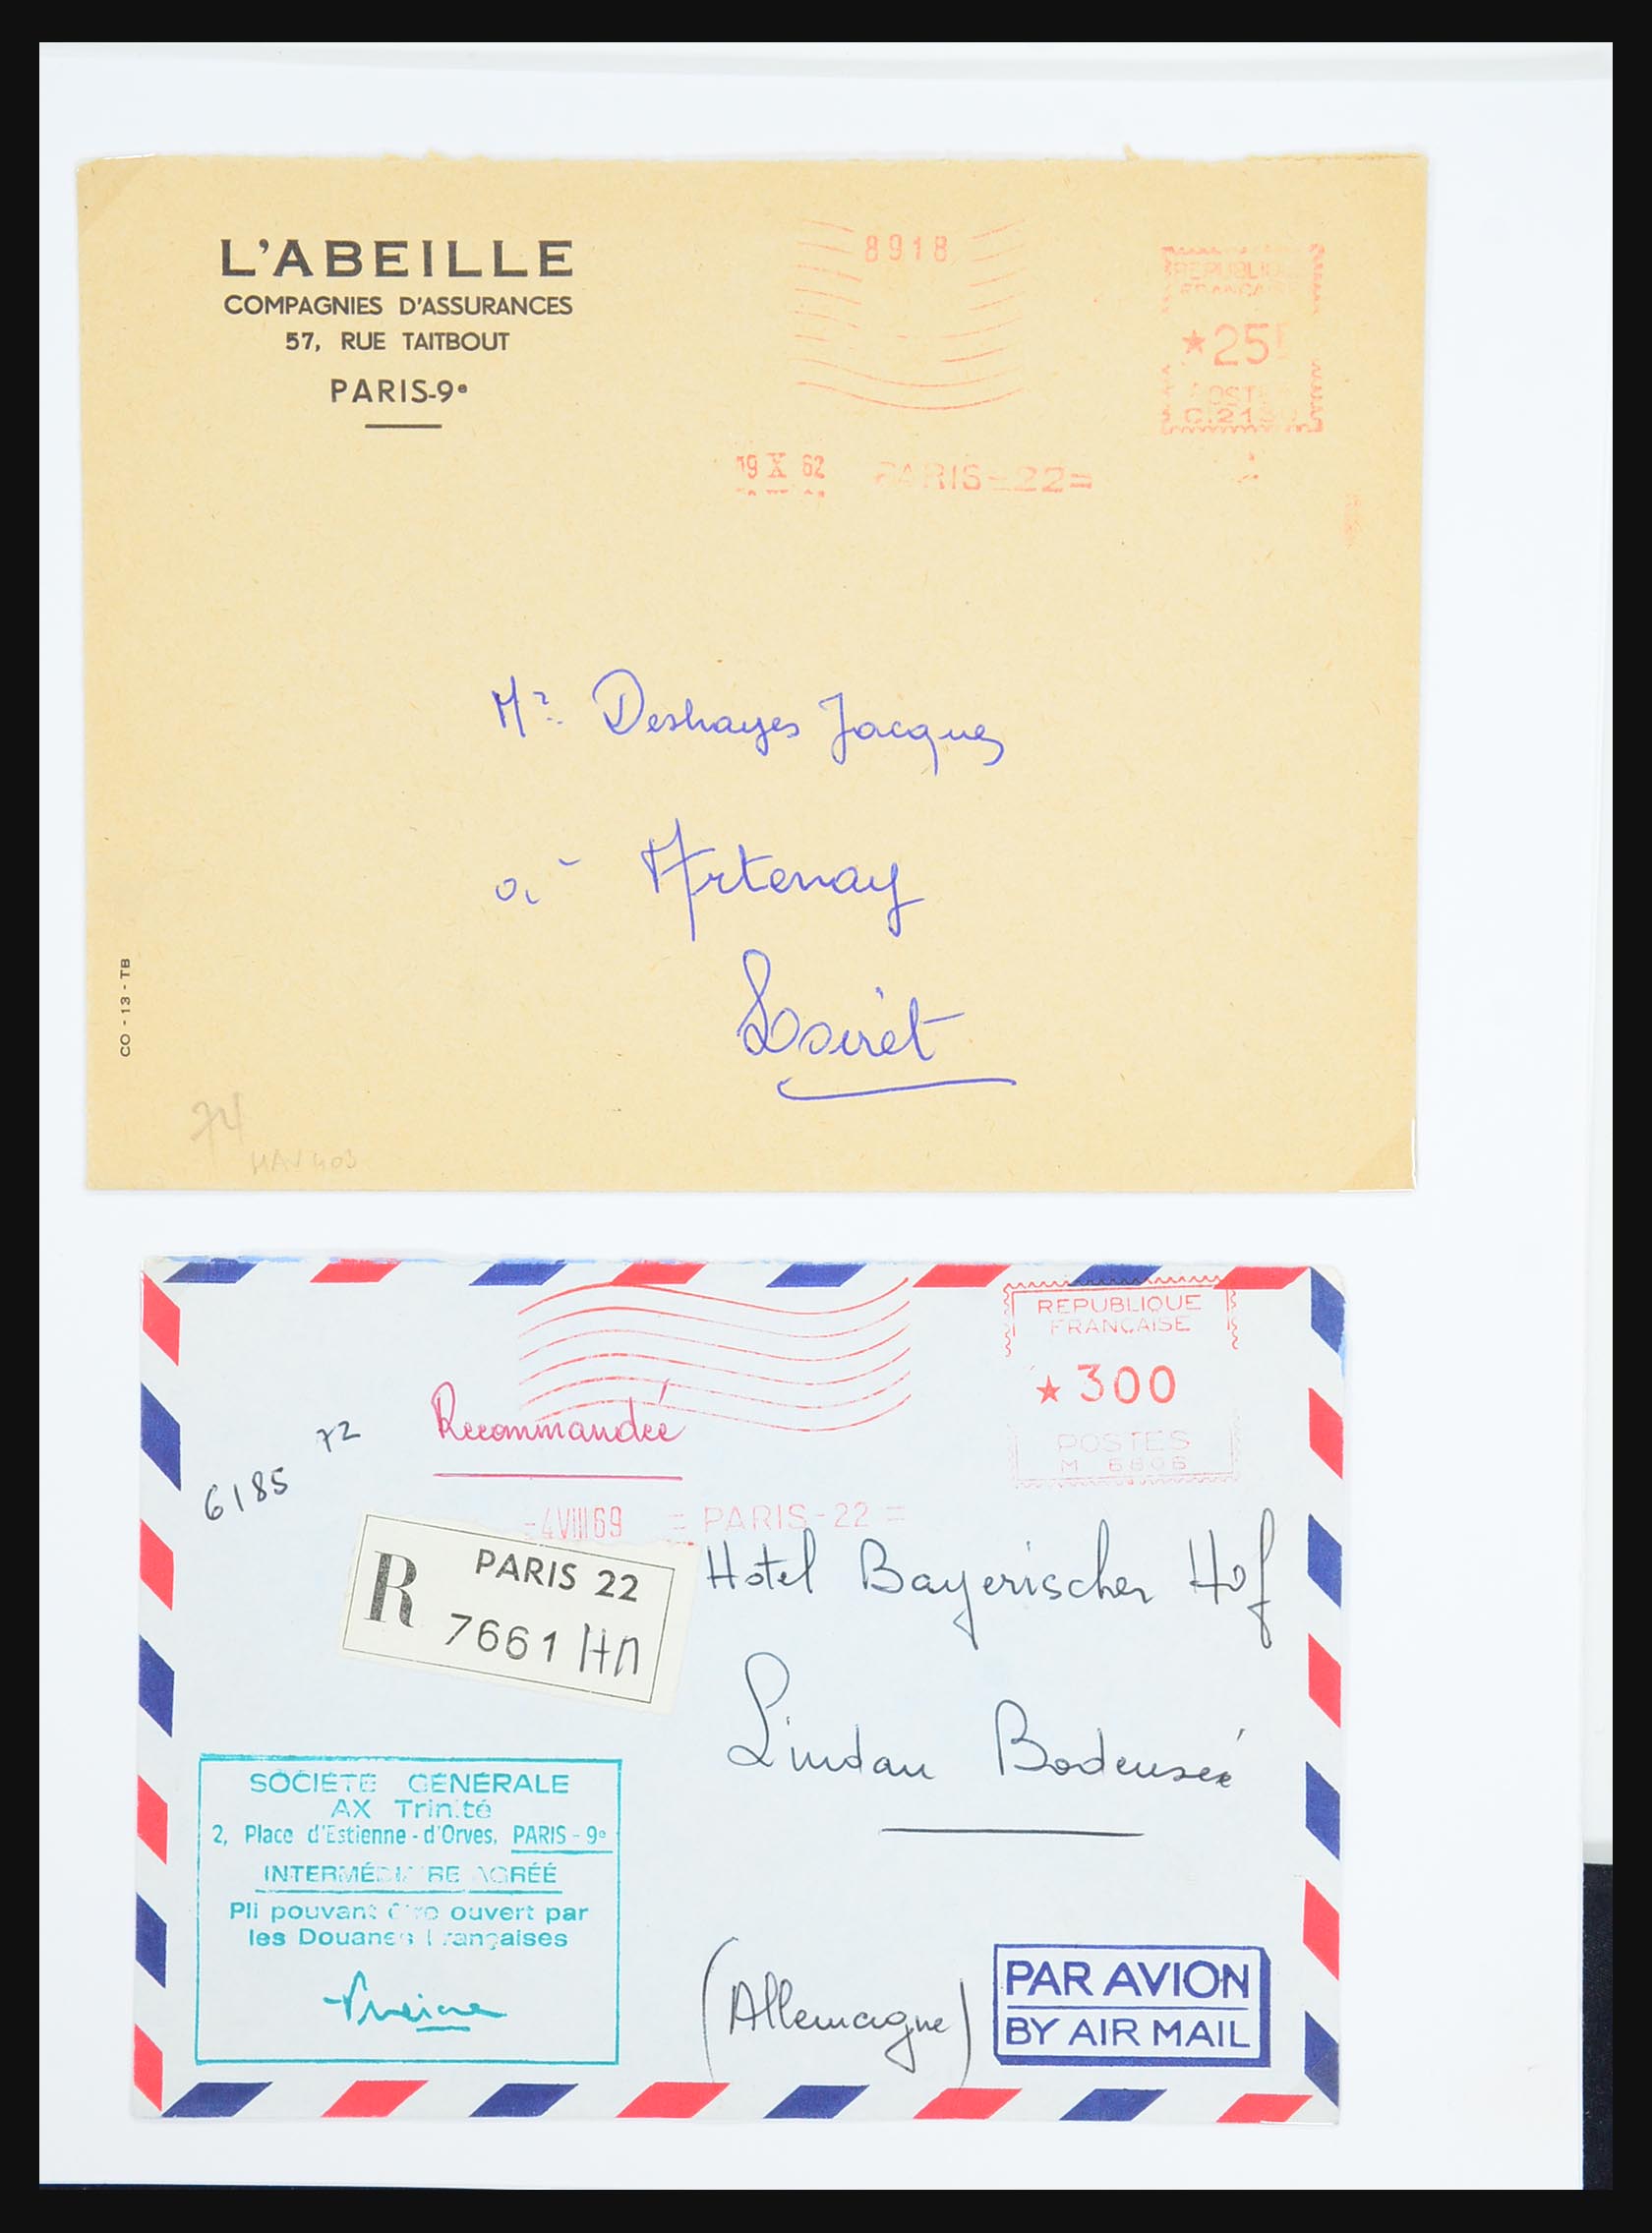 L'ABEILLE
COMPAGNIES D'ASSURANCES
57, RUE TAITBOUT
PARIS-9e
8918
REPUBLIQUE
FRANÇAISE
★25
POSTE
C.213
19 X 62 PARIS-22=
Mr. Deshayes Jacques
à Artenay
Loiret
CO - 13 - TB
74
REPUBLIQUE
FRANÇAISE
★ 300
POSTES
M 6806
Recommandée
72
6185
-4VIII69 = PARIS-22 =
R PARIS 22
7661 HN
Hotel Bayerischer Hof
Lindau Bodensee
(Allemagne)
SOCIÉTÉ GÉNÉRALE
AX Trinité
2, Place d'Estienne-d'Orves, PARIS-9e
INTERMÉDIAIRE AGRÉÉ
Pli pouvant être ouvert par
les Douanes Françaises
PAR AVION
BY AIR MAIL